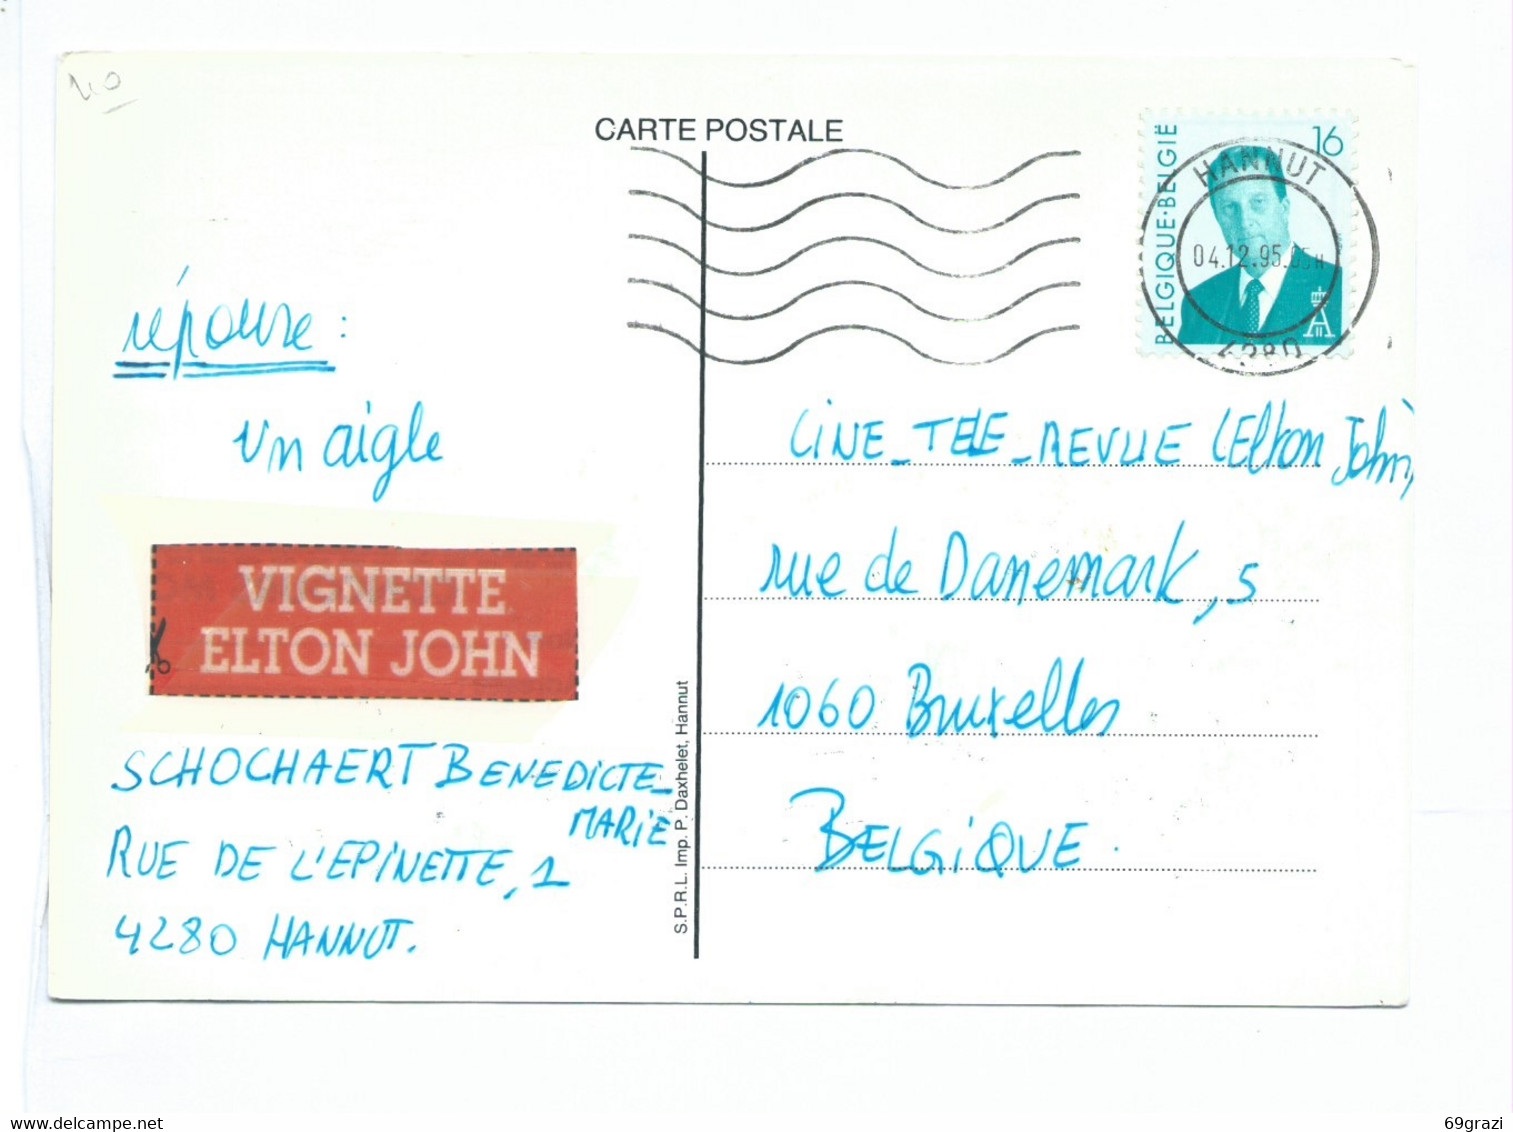 CARTE POSTALE
BELGIQUE·BELGIË
16
HANNUT
04.12.95.
4280
réponse :
un aigle
VIGNETTE
ELTON JOHN
SCHOCHAERT BENEDICTE_
MARIE
RUE DE L'EPINETTE, 1
4280 HANNUT.
S.P.R.L. Imp. P. Daxhelet, Hannut
CINE_TELE_REVUE (Elton John)
rue de Danemark, 5
1060 Bruxelles
BELGIQUE.
69grazi